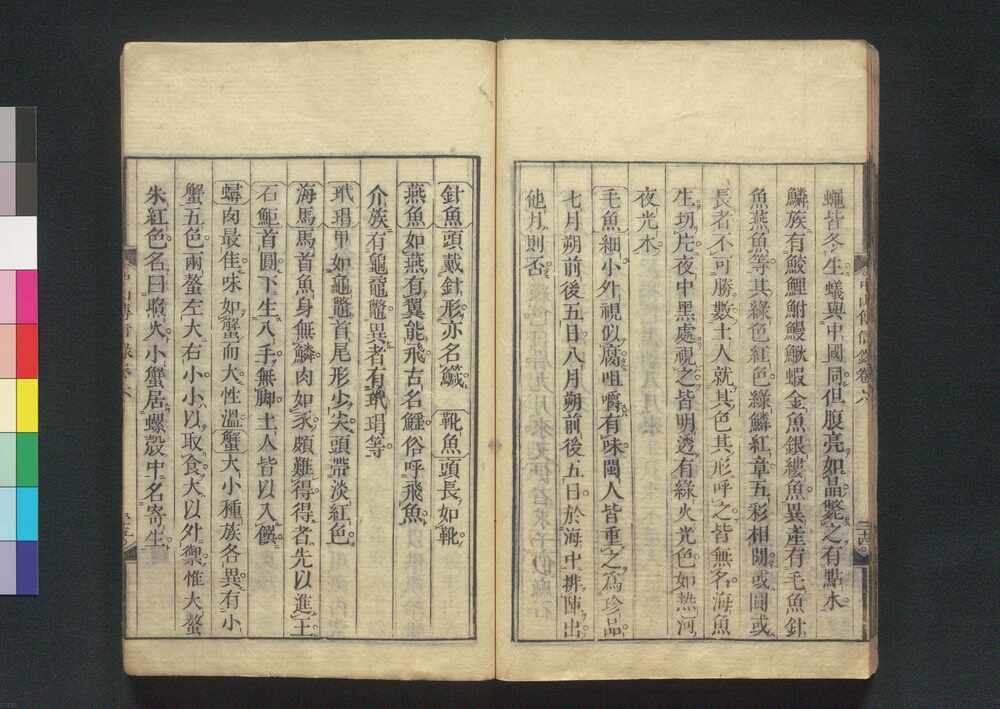 蠅皆冬生蟻與中國同但腹亮如晶斃之有點水
鱗族有鮫鯉鮒鰻鰍蝦金魚銀縷魚異産有毛魚針
魚燕魚等其綠色紅色綠鱗紅章五彩相間或圓或
長者不可勝數土人就其色其形呼之皆無名海魚
生切片夜中黑處視之皆明透有綠火光色如熱河
夜光木
毛魚細小外視似腐咀嚼有味閩人皆重之爲珍品
七月朔前後五日八月朔前後五日於海中排陣出
他月則否
針魚頭戴針形亦名鱵 靴魚頭長如靴
燕魚如燕有翼能飛古名鱰俗呼飛魚
介族有龜鼈異者有玳瑁等
玳瑁甲如龜鼈首尾形少尖頭帶淡紅色
海馬馬首魚身無鱗肉如豕頗難得得者先以進王
石鮔首圓下生八手無脚土人皆以入饌
蟳肉最佳味如蟹而大性溫蟹大小種族各異有小
蟹五色兩螯左大右小小以取食大以外禦惟大螯
朱紅色名曰火小蟹居螺殼中名寄生
中山傳信錄卷六